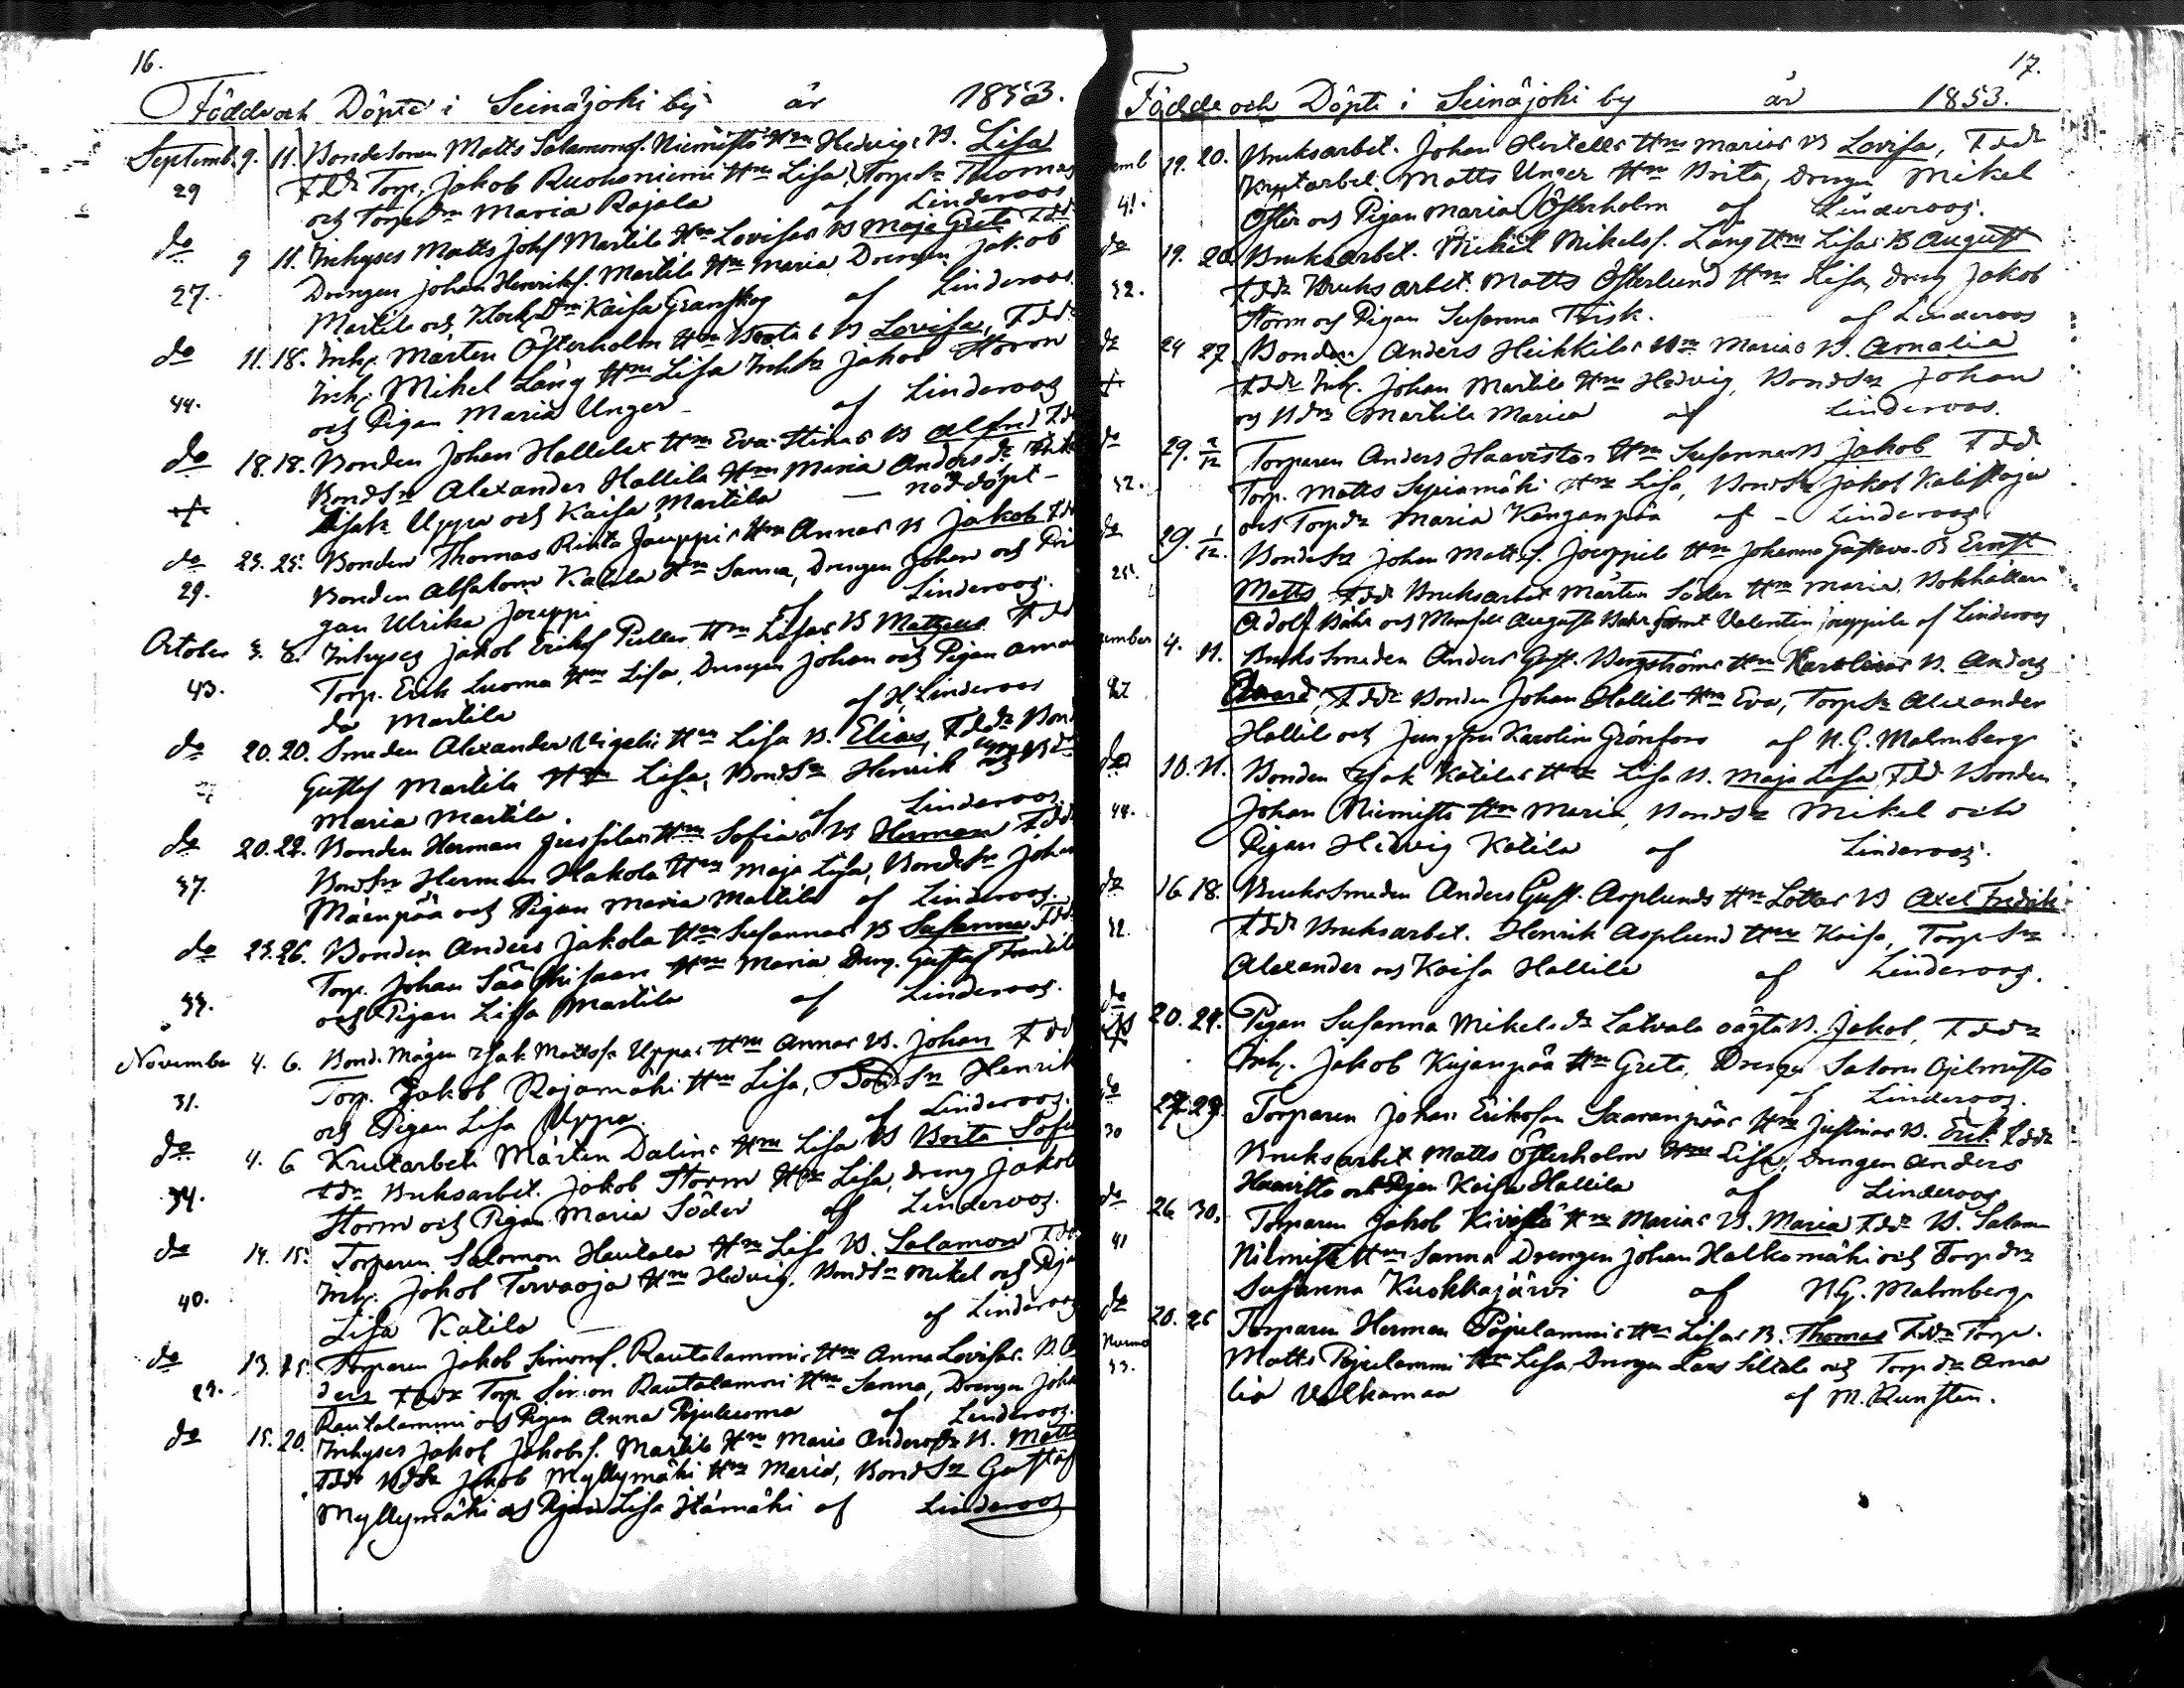 16.
Födde och Döpte i Seinäjoki by år 1853.
Septemb. 9. 11. Bondesonen Matts Salamonss. Niemistö Hm Hedvigs B. Lisa
29 Fddr Torp. Jakob Ruohoniemi Hm Lisa, Torp.Sn Thomas
och Torpdrn Maria Rajala af Linderoos
do 9 11. Inhyses Matts Johss Martila Hm Lovisas B Maja Greta Fdd
27. Drengen Johan Henrikss. Martila Hm Maria Drengen Jakob
Martila och Klock.Dn Kaisa Granskog af Linderoos
do 11. 18. Inh. Mårten Österholm Hm Brita s B Lovisa, Fddr
44. Inh. Mikel Lång Hm Lisa Inh.Sn Jakob Storm
och Pigan Maria Unger af Linderoos
do 18. 18. Bonden Johan Hallilas Hm Eva Stinas B Alfred Fdd
+ BondSn Alexander Hallila Hm Maria Andersdr
Isak Uppa och Kaisa Martila — nöddöpt —
do 23. 25. Bonden Thomas Rinta Jouppis Hm Annas B Jakob Fdd
29. Bonden Absalom Katila Hm Sanna, Drengen Johan och Pi
gan Ulrika Jouppi af Linderoos.
October 3. 8. Inhyses Jakob Eriks Hm Lisas B Mattheus Fdd
43. Torp. Erik Luoma Hm Lisa, Drengen Johan och Pigan Ama
da Martila af H. Linderoos
do 20. 20. Smeden Alexander Hm Lisa B. Elias, Fddr Bond
Gustaf Martila Hm Lisa, BondSn Henrik och
Maria Martila. af Linderoos
do 20. 22. Bonden Herman Hm Sofias B Herman Fdd
37. BondSn Herman Hakola Hm Maja Lisa, BondeSn Johan
Mäenpää och Pigan Maria Mattila af Linderoos.
do 23. 26. Bonden Anders Jakola Hm Susannas B Susanna Fdd
33. Torp. Johan Sääskisaari Hm Maria Dreng. Gustaf
och Pigan Lisa Martila af Linderoos.
November 4. 6. Bond.Mågen Isak Mattss. Uppas Hm Annas B. Johan Fdd
31. Torp. Jakob Rajamäki Hm Lisa, BondSn Henrik
och Pigan Lisa Uppa. af Linderoos.
do 4. 6 Krutarbet. Mårten Dalins Hm Lisas B Brita Sofia
34. Fdr Bruksarbet. Jakob Storm Hm Lisa, dreng Jakob
Storm och Pigan Maria Söder af Linderoos.
do 14. 15. Torparen Salomon Hautala Hm Lisa B. Salamon Fdd
40. Inh. Jakob Tervaoja Hm Hedvig. BondSn Mikel och Pigan
Lisa Katila — af Linderoos
do 13. 15. Torparen Jakob Simonss. Rautalammis Hm Anna Lovisas B. An
29. ders Fddr Torp. Simon Rautalammi Hm Sanna, Drengen Joha
Rautalammi och Pigan Anna Pajuluoma af Linderoos.
do 15. 20. Inhyses Jakob Jakobss. Martila Hm Maria Andersdr B. Matts
Fddr Jakob Myllymäki Hm Maria, BondSn Gustaf
Myllymäki och Pigan Lisa Itämäki af Linderoos
17.
Födde och Döpte i Seinäjoki by år 1853.
emb 19. 20. Bruksarbet. Johan Hertells Hm Marias B Lovisa, Fddr
41. Krutarbet. Matts Unger Hm Brita, Drengen Mikel
Öster och Pigan Maria Österholm af Linderoos.
do 19. 20. Bruksarbet. Mikel Mikelss. Lång Hm Lisas B August
32. Fddr Bruksarbet. Matts Österlund Hm Lisa, dreng Jakob
Storm och Pigan Susanna Frisk. af Linderoos
do 24 27 Bonden Anders Heikkilas Hm Marias B. Amalia
+ Fddr Inh. Johan Martila Hm Hedvig, BondSn Johan
och Bdr Martila Maria af Linderoos.
do 29. 2/12 Torparen Anders Haavistos Hm Susannas B Jakob Fddr
32. Torp. Matts Hm Lisa, BondSn Jakob
och Torpdr Maria Kanganpää af - Linderoos
do 29. 1/12. BondeSn Johan Mattss. Jouppila Hm Johanna Gustava B Ernst
25. Matts Fddr Bruksarbet Mårten Söder Hm Maria, Bokhållare
Adolf Bähr och Mamsell Augusta Bähr samt Valentin Jouppila af Linderoos
ember 4. 11. Bruks Smeden Anders Gust. Bergströms Hm Karolinas B. Anders
27 Edvard, Fddr Bonden Johan Hallila Hm Eva, TorpSn Alexander
Hallila och Jungfru Karolina Grönfors af N. G. Malmberg
do 10. 11. Bonden Isak Katilas Hm Lisa B. Maja Lisa Fddr Bonden
44. Johan Niemistö Hm Maria, BondSn Mikel och
Pigan Hedvig Katila af Linderoos.
do 16 18. Bruks Smeden Anders Gust. Asplunds Hm Lottas B Axel Fredrik
32. Fddr Bruksarbet. Henrik Asplund Hm Kaisa, Torp Sn
Alexander och Kaisa Hallila af Linderoos.
do 20. 24. Pigan Susanna Mikelsdr Latvala oägta B. Jakob, Fddr
Inh. Jakob Kujanpää Hm Greta, Drengen Salom
af Linderoos.
do 27. 29. Torparen Johan Eriksson Saarenpääs Hm Justinas B. Erik Fddr
30 Bruksarbet Matts Österholm Hm Lisa, Drengen Anders
Haavisto och Pigan Kaisa Hallila af Linderoos
do 26 30. Torparen Jakob Kivistö Hm Marias B. Maria Fddr B. Salam
41 Niemistö Hm Sanna Drengen Johan Halkomäki och Torpdr
Susanna Kuokkajärvi af N G. Malmberg
do 20. 26 Torparen Herman Pajulammis Hm Lisas B. Thomas Fddr Torp.
Nurmo
33. Matts Pajulammi Hm Lisa, Drengen Lars Siltala och Torpdr Ama
lia Valkamaa af M. Runsten.